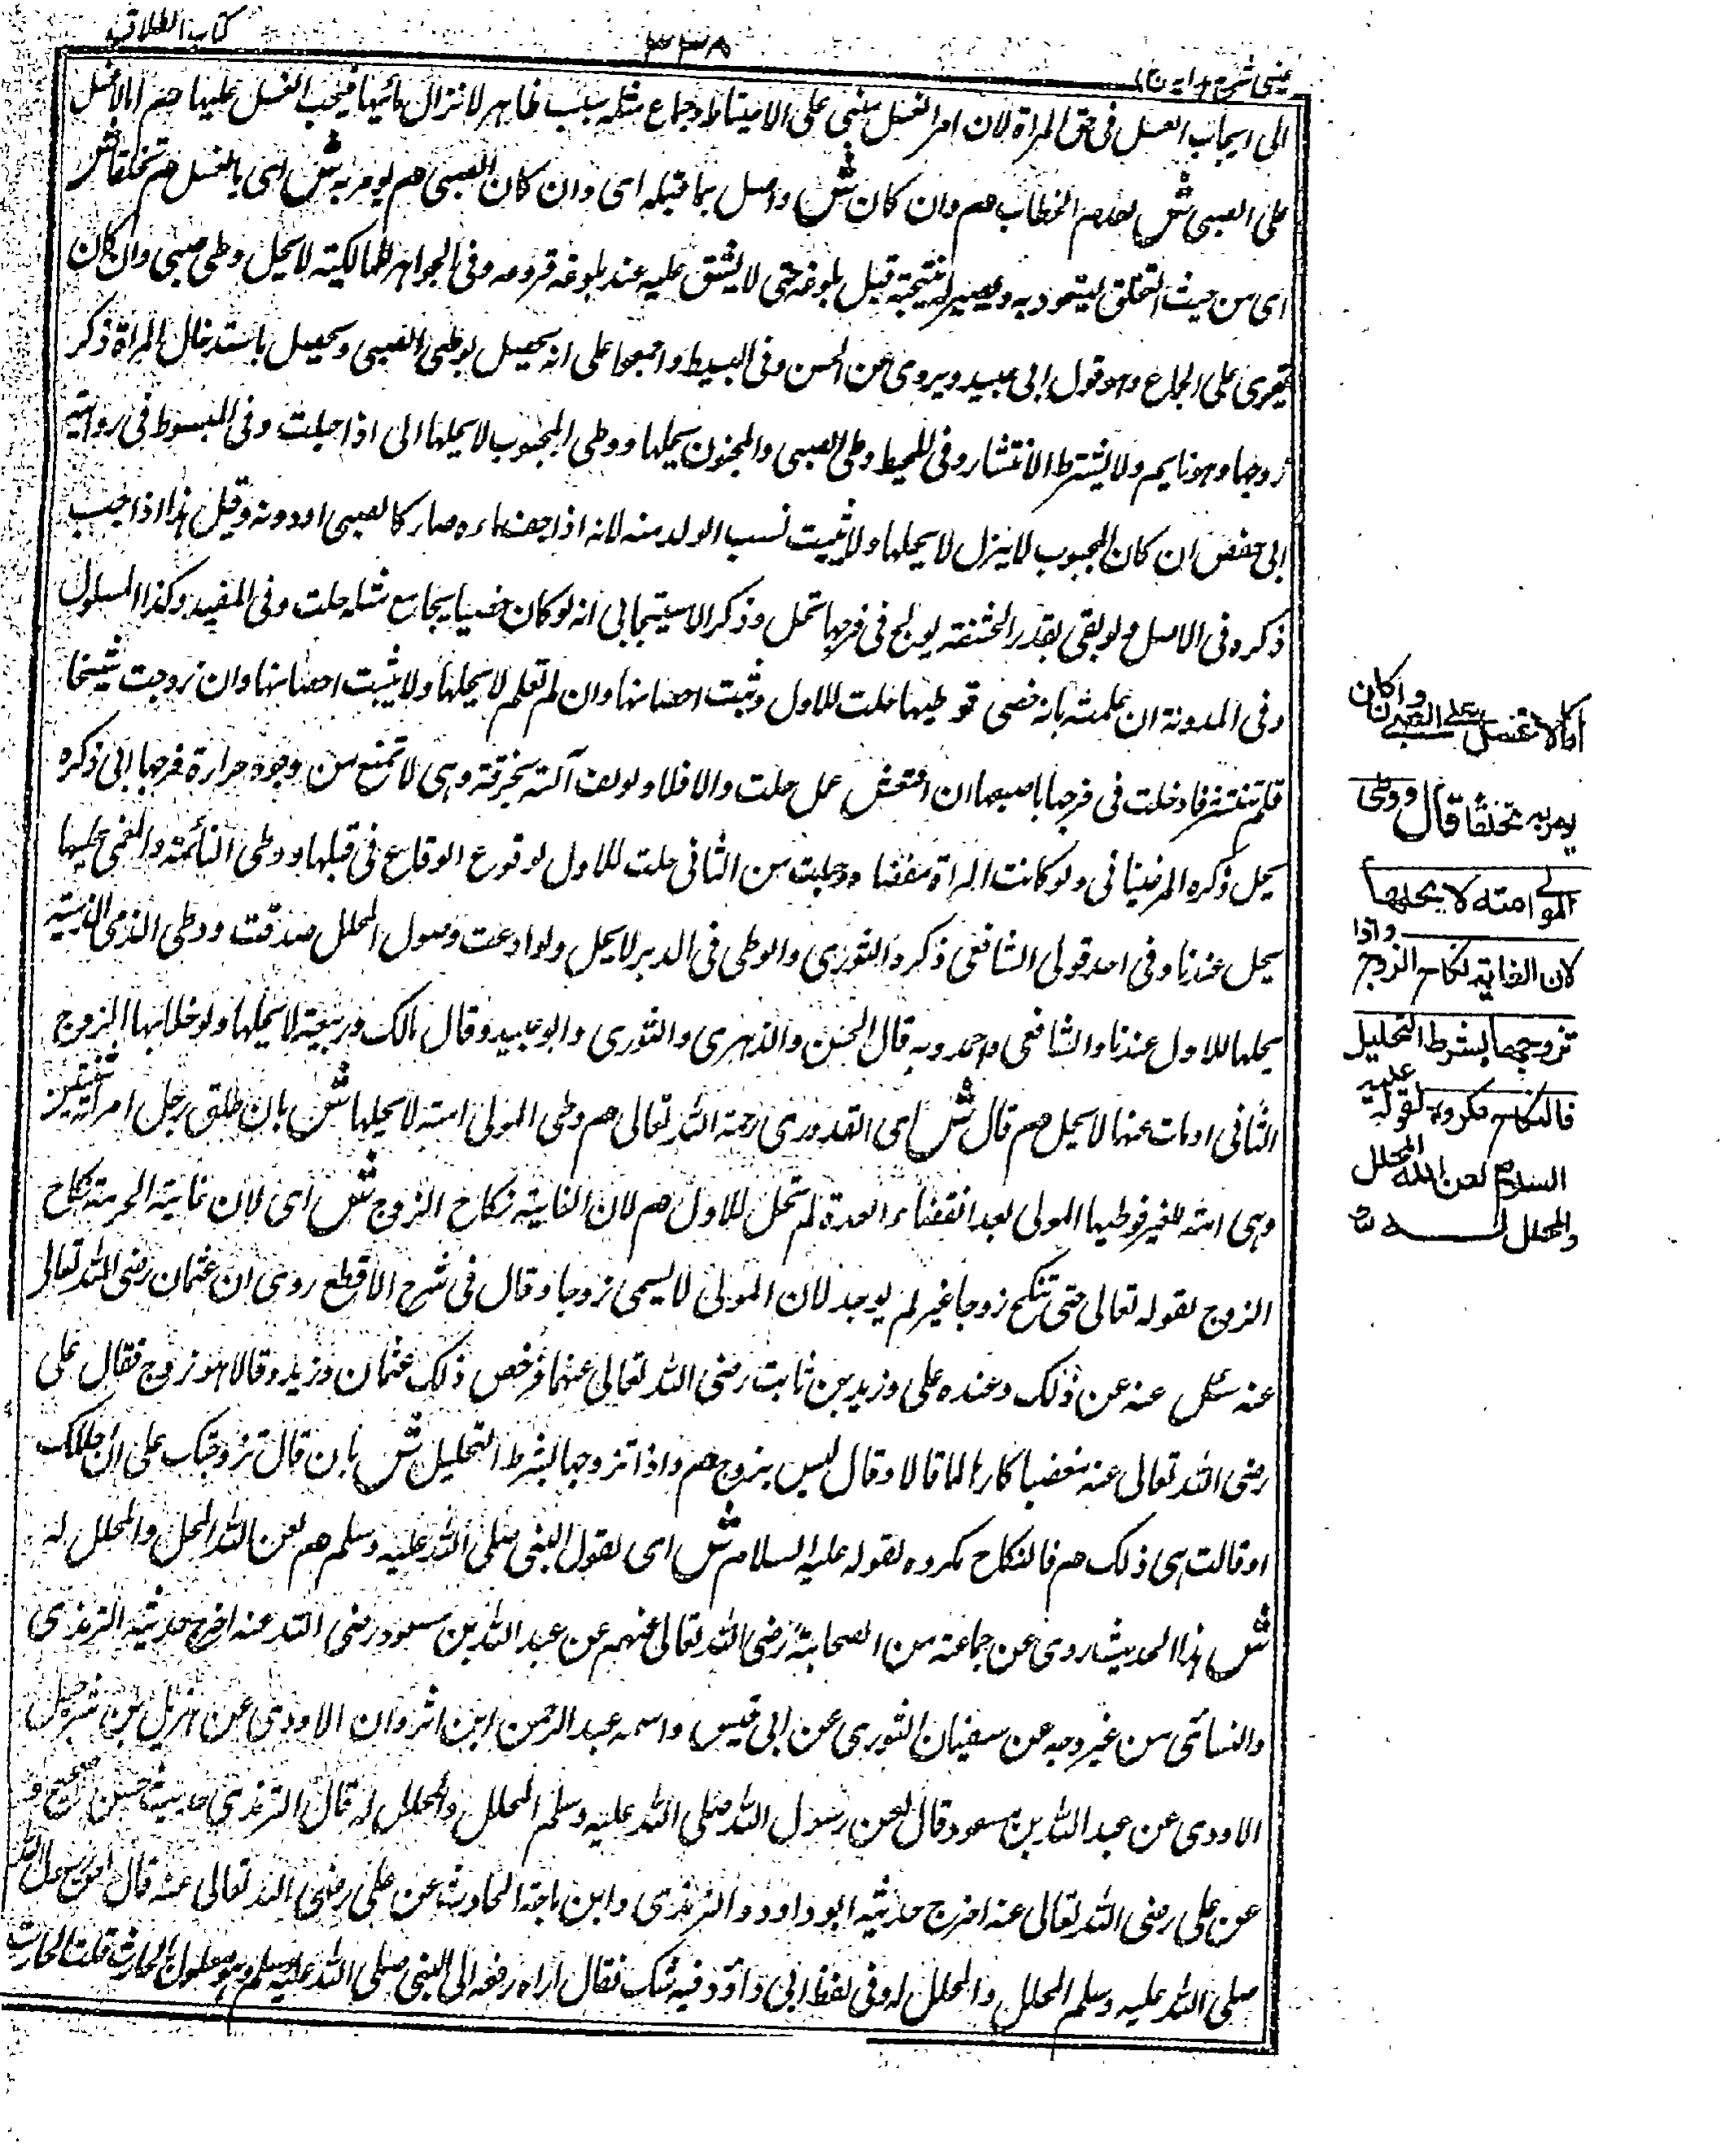 كتاب الطلاق
٣٣٨
عينى شرح هدايه
الى ايجاب الغسل فى حق المراة لان امر الغسل مبنى على الاحتياط وجماع مثله سبب ظاهر لانزال مائها فيجب الغسل عليها هم اما لا غسل
على الصبى ش لعدم الخطاب هم وان كان ش واصل بما قبله اى وان كان الصبى هم يومر به ش اى بالغسل هم تخلقا ش
اى من حيث التخلق ليتعود به ويصير له سجية قبل بلوغه حتى لا يشق عليه عند بلوغه وفى الجواهر للمالكية لا يحل وطى صبى وان كان
يقوى على الجماع وهو قول ابى عبيد ويروى عن الحسن وفى البسيط واجمعوا على انه يحصل بوطى الصبى ويحصل باستدخال المراة ذكر
زوجها وهو نايم ولا يشترط الانتشار وفى المحيط وطى الصبى والمجنون يحلها ووطى المجبوب لا يحلها الى اذا حبلت وفى المبسوط فى رواية
ابى حفص ان كان المجبوب لا ينزل لا يحلها ولا يثبت نسب الولد منه لانه اذا جف ماءه صار كالصبى او دونه وقيل هذا اذا جب
ذكره فى الاصل ولو بقى بقدر الحشفة يولج فى فرجها تحل وذكر الاسبيجابى انه لو كان خصيا يجامع مثله حلت وفى المفيد وكذا المسلول
وفى المدونة ان علمت بانه خصى فوطيها حلت للاول وثبت احصانها وان لم تعلم لا يحلها ولا يثبت احصانها وان تزوجت شيخا
فلم تنتشر فادخلت فى فرجها باصبعها ان انتعش عمل حلت والا فلا ولو لف آلته بخرقة وهى لا تمنع من وجود حرارة فرجها الى ذكره
يحل ذكره المرغينانى ولو كانت المراة مفضاة وحبلت من الثانى حلت للاول لوقوع الوقاع فى قبلها ووطى النائمة والمغمى عليها
يحل عندنا وفى احد قولى الشافعى ذكره النووى والوطى فى الدبر لا يحل ولو ادعت وصول المحلل صدقت ووطى الذمى الذمية
يحلها للاول عندنا والشافعى واحمد وبه قال الحسن والزهرى والثورى وابو عبيد وقال مالك وربيعة لا يحلها ولو خلا بها الزوج
الثانى او مات عنها لا يحل هم قال ش اى القدورى رحمة الله تعالى هم وطى المولى امته لا يحلها ش بان طلق رجل امراته ثنتين
وهى امة للغير فوطيها المولى بعد انقضاء العدة لم تحل للاول هم لان الغاية نكاح الزوج ش اى لان غاية الحرمة نكاح
الزوج لقوله تعالى حتى تنكح زوجا غيره لم يوجد لان المولى لا يسمى زوجا وقال فى شرح الاقطع روى ان عثمان رضى الله تعالى
عنه سئل عنه عن ذلك وعنده على وزيد بن ثابت رضى الله تعالى عنهما فرخص ذلك عثمان وزيد وقالا هو زوج فقال على
رضى الله تعالى عنه مغضبا كارها لما قالا وقال ليس بزوج هم واذا تزوجها بشرط التحليل ش بان قال تزوجتك على ان احللك
او قالت هى ذلك هم فالنكاح مكروه لقوله عليه السلام ش اى لقول النبى صلى الله عليه وسلم هم لعن الله المحلل والمحلل له
ش هذا الحديث روى عن جماعة من الصحابة رضى الله تعالى عنهم عن عبد الله بن مسعود رضى الله عنه اخرج حديثه الترمذى
والنسائى من غير وجه عن سفيان الثورى عن ابى قيس واسمه عبد الرحمن ابن اثروان الاودى عن هزيل بن شرحبيل
الاودى عن عبد الله بن مسعود قال لعن رسول الله صلى الله عليه وسلم المحلل والمحلل له قال الترمذى حديث حسن صحيح و
عن على رضى الله تعالى عنه اخرج حديثه ابو داود والترمذى وابن ماجة الحارث عن على رضى الله تعالى عنه قال لعن رسول الله
صلى الله عليه وسلم المحلل والمحلل له وفى لفظ ابى داؤد فيه شك فقال اراه رفعه الى النبى صلى الله عليه وسلم وهو معلول بالحارث قلت الحارث
اما لا غسل على الصبى وان كان
يومر به تخلقا قال ووطى
المولى امته لا يحلها
لان الغاية نكاح الزوج واذا
تزوجها بشرط التحليل
فالنكاح مكروه لقوله عليه
السلام لعن الله المحلل
والمحلل له